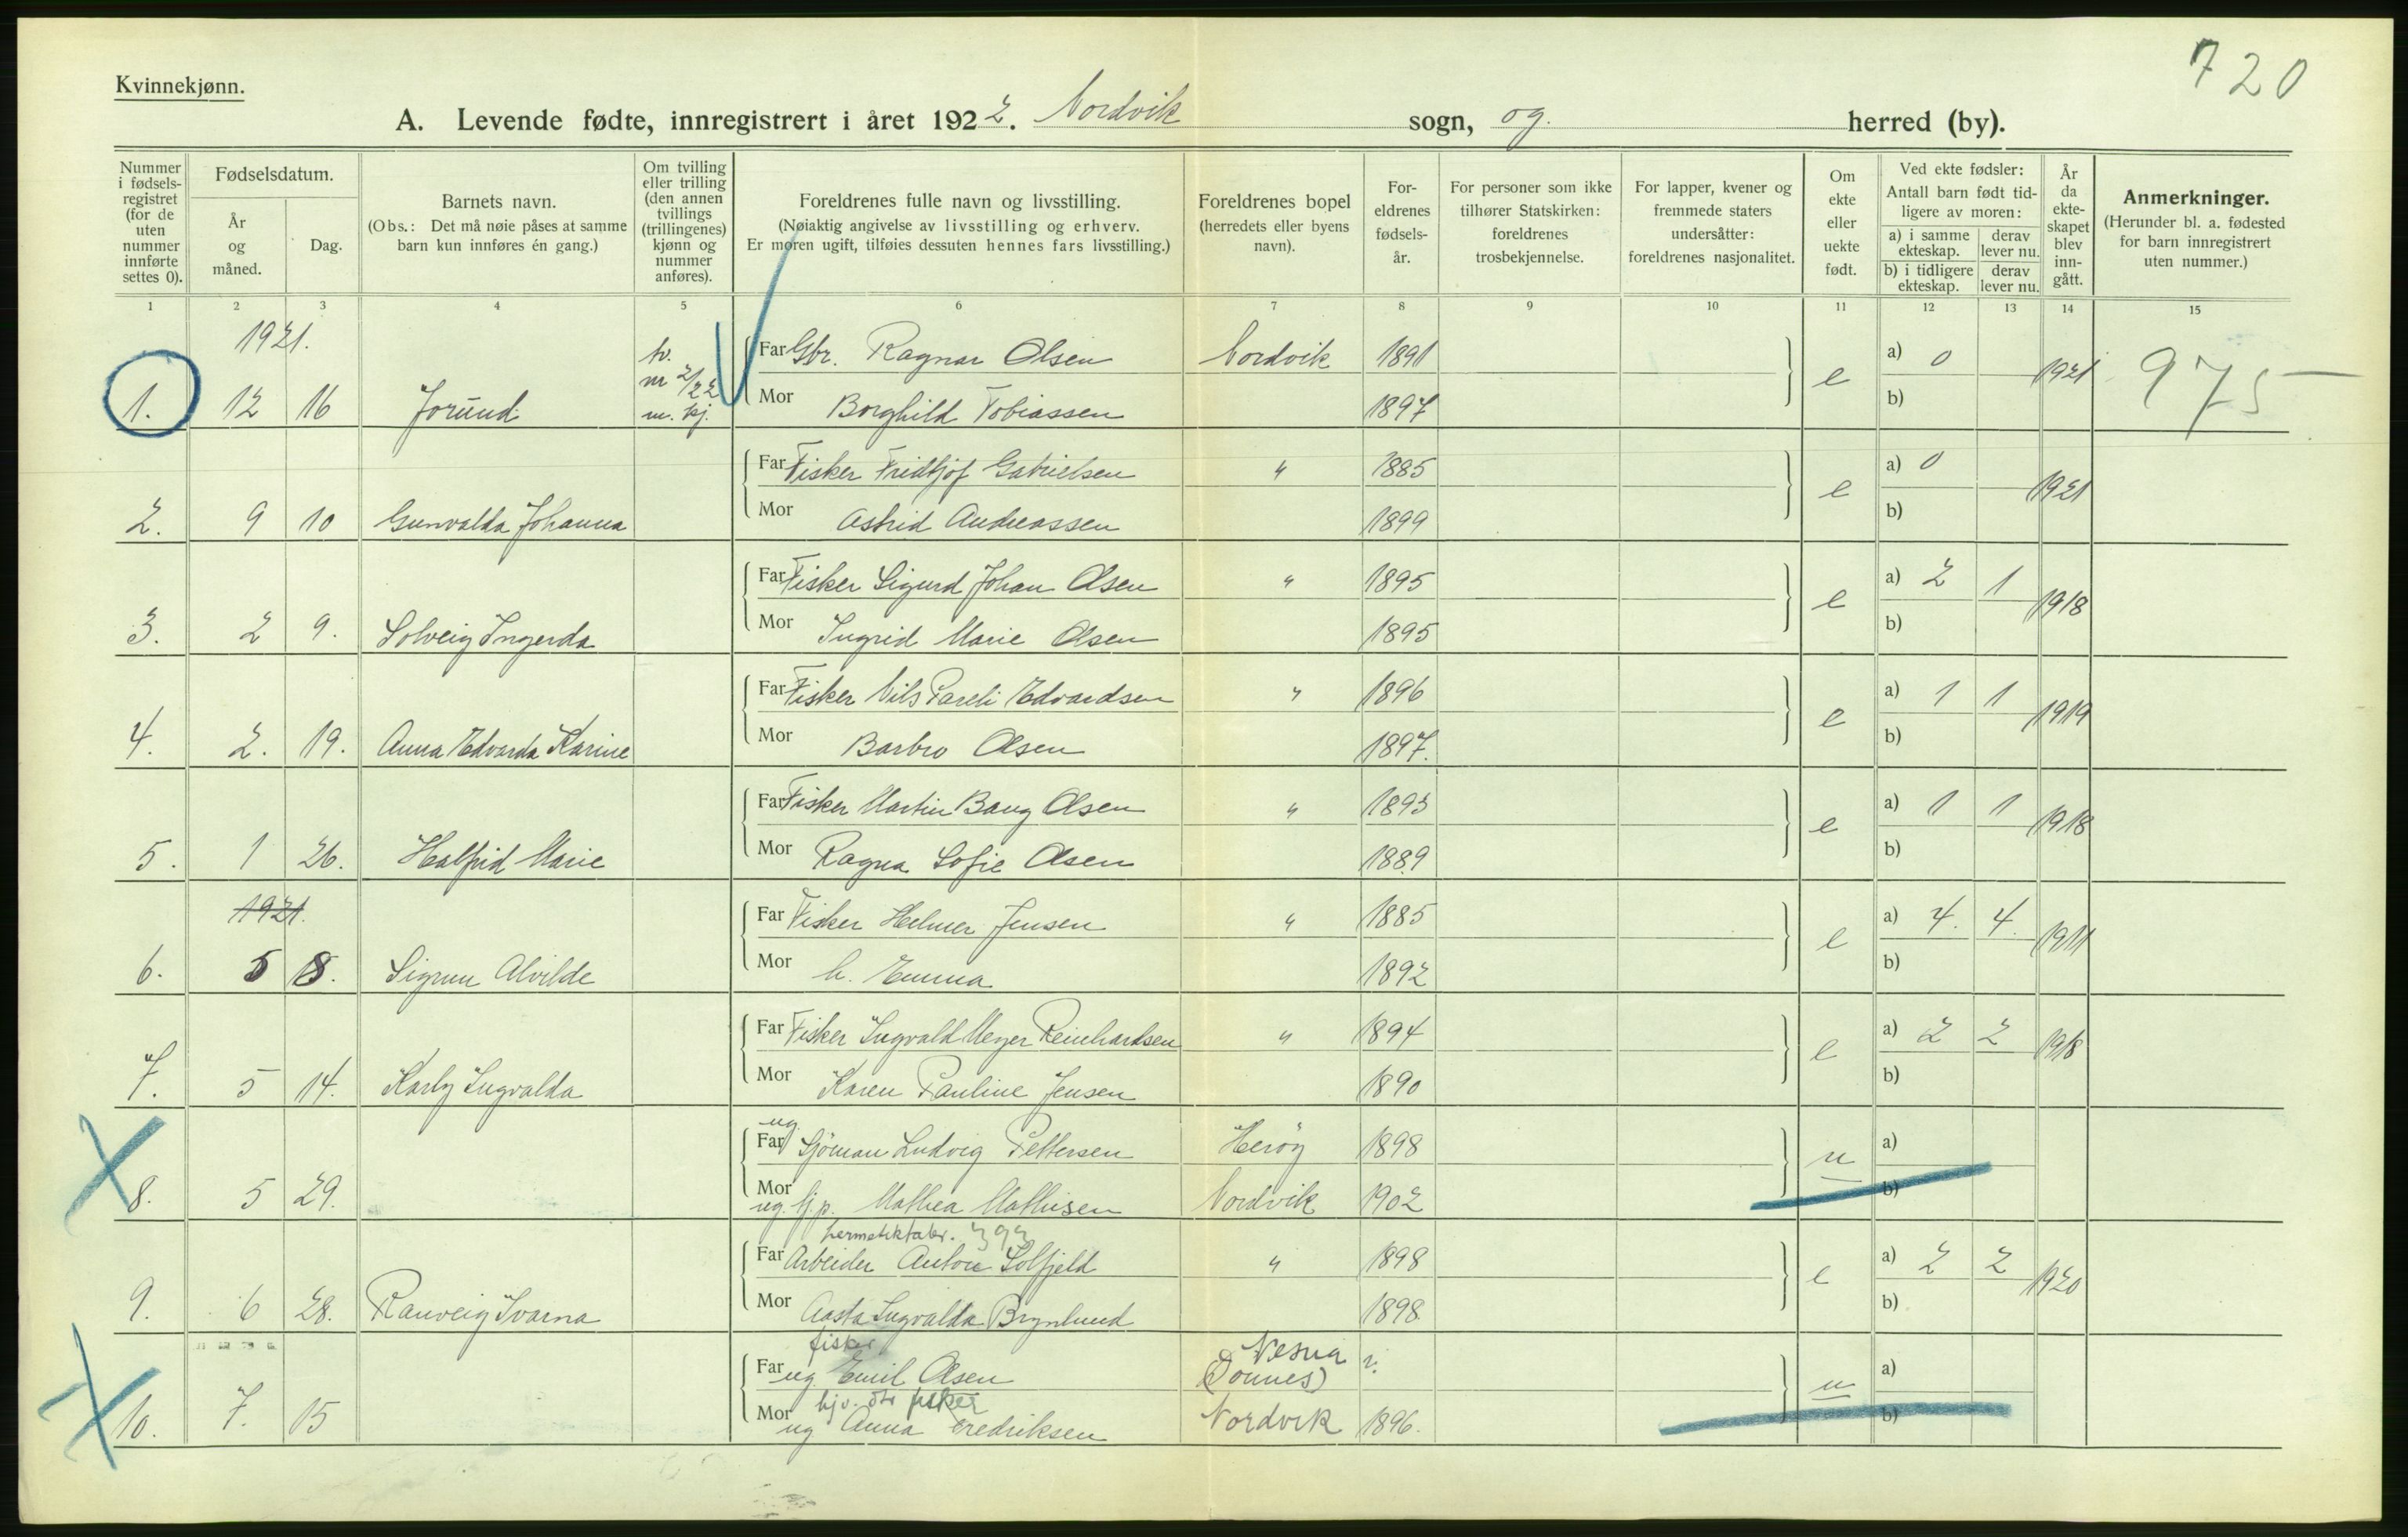 720
Kvinnekjønn.
A. Levende fødte, innregistrert i året 1922. Nordvik sogn, og herred (by).
Nummer i fødsels-registret (for de uten nummer innførte settes 0).
Fødselsdatum.
År og måned.
Dag.
Barnets navn.
(Obs.: Det må nøie påses at samme barn kun innføres én gang.)
Om tvilling eller trilling (den annen tvillings (trillingenes) kjønn og nummer anføres).
Foreldrenes fulle navn og livsstilling.
(Nøiaktig angivelse av livsstilling og erhverv.
Er moren ugift, tilføies dessuten hennes fars livsstilling.)
Foreldrenes bopel
(herredets eller byens navn).
For-eldrenes fødsels-år.
For personer som ikke tilhører Statskirken: foreldrenes trosbekjennelse.
For lapper, kvener og fremmede staters undersåtter: foreldrenes nasjonalitet.
Om ekte eller uekte født.
Ved ekte fødsler:
Antall barn født tid-ligere av moren:
a) i samme ekteskap. derav lever nu.
b) i tidligere ekteskap. derav lever nu.
År da ekte-skapet blev inn-gått.
Anmerkninger.
(Herunder bl. a. fødested for barn innregistrert uten nummer.)
1 2 3 4 5 6 7 8 9 10 11 12 13 14 15
1921.
1. 12 16 Jorund tv. nr 2/22 m. kj. Far Gbr. Ragnar Olsen Nordvik 1891 e a) 0 1921 975
Mor Borghild Tobiassen 1897 b)
2. 9 10 Gunvalda Johanna Far Fisker Fridtjof Gabrielsen " 1885 e a) 0 1921
Mor Astrid Andreassen 1899 b)
3. 2 9. Solveig Ingerda Far Fisker Sigurd Johan Olsen " 1895 e a) 2 1 1918
Mor Ingrid Marie Olsen 1895 b)
4. 2. 19. Anna Edvarda Karine Far Fisker Nils Pareli Edvardsen " 1896 e a) 1 1 1919
Mor Barbro Olsen 1897. b)
5. 1 26. Halfrid Marie Far Fisker Martin Bang Olsen " 1893 e a) 1 1 1918
Mor Ragna Sofie Olsen 1889 b)
1921.
6. 5 8. Sigrun Alvilde Far Fisker Helmer Jensen " 1885 e a) 4. 4. 1911
Mor h. Emma 1892 b)
7. 5 14. Karly Ingvalda Far Fisker Ingvald Meyer Reinhardsen " 1894 e a) 2 2 1918
Mor Karen Pauline Jensen 1890 b)
8. 5 29. Far ug. Sjöman Ludvig Pettersen Herøy 1898 u a)
Mor ug. tj.p. Mathea Mathisen Nordvik 1902 b)
hermetikfabr. 393
9. 6 28. Ranveig Ivarna Far Arbeider Anton Solfjeld " 1898 e a) 2 2 1920
Mor Aasta Ingvalda Brynlund 1898 b)
fisker
10. 7. 15 Far ug. Emil Olsen Nesna (Dønnes) ?. u a)
hjv. dtr fisker
Mor ug Anna Fredriksen Nordvik 1896. b)